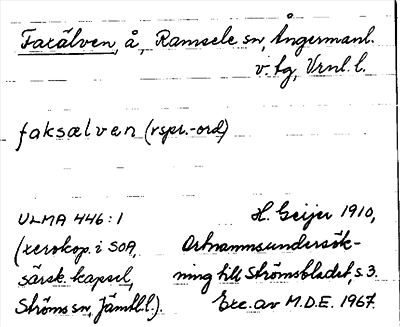 Faxälven, å, Ramsele sn, Ångermanl.
v. tg, Vrnl. l.
faksælven (rspr.-ord)
ULMA 446:1 H. Geijer 1910,
(xerokop. i SOA, Ortnammsundersök-
särsk. kapsel, ning till Strömsbladet, s. 3.
Ströms sn, Jämtl. l.). Exc. av M.D.E. 1967.